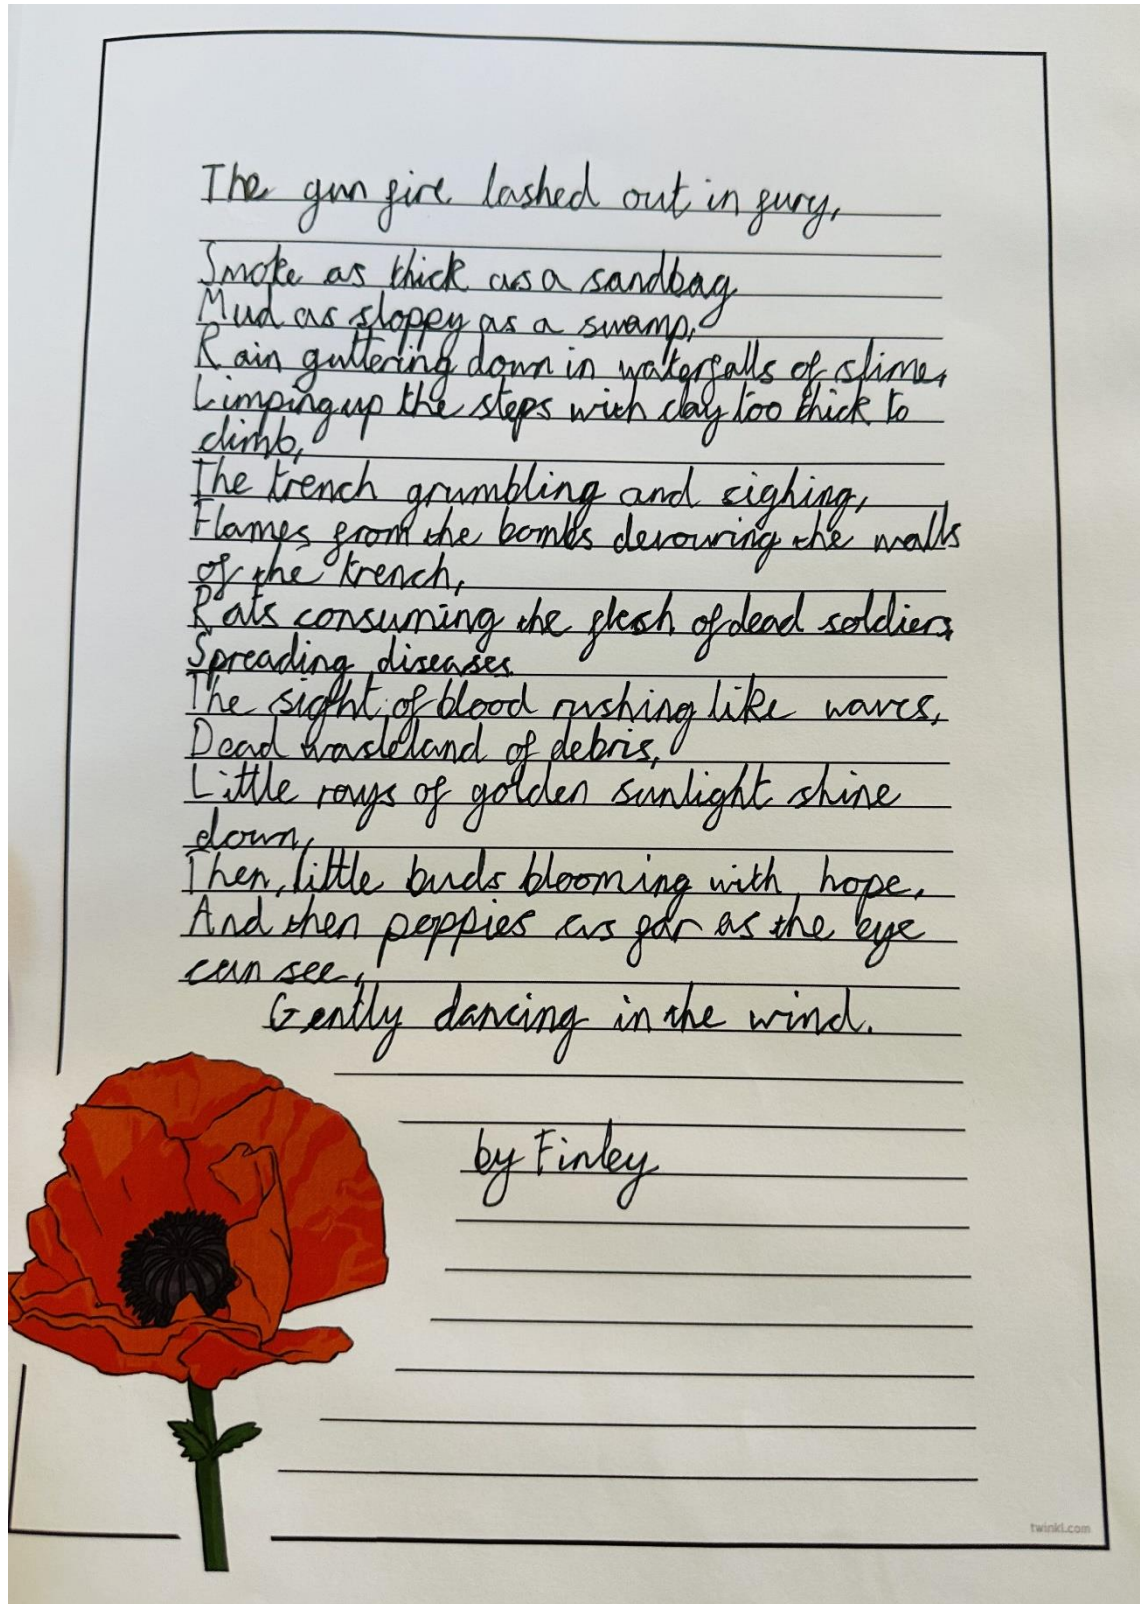 The gun fire lashed out in fury,
Smoke as thick as a sandbag
Mud as sloppy as a swamp,
Rain guttering down in waterfalls of slime,
Limping up the steps with clay too thick to
climb,
The trench grumbling and sighing,
Flames from the bombs devouring the walls
of the trench,
Rats consuming the flesh of dead soldiers,
Spreading diseases.
The sight of blood rushing like waves,
Dead wasteland of debris,
Little rays of golden sunlight shine
down,
Then, little buds blooming with hope,
And then poppies as far as the eye
can see,
Gently dancing in the wind.
by Finley
twinkl.com